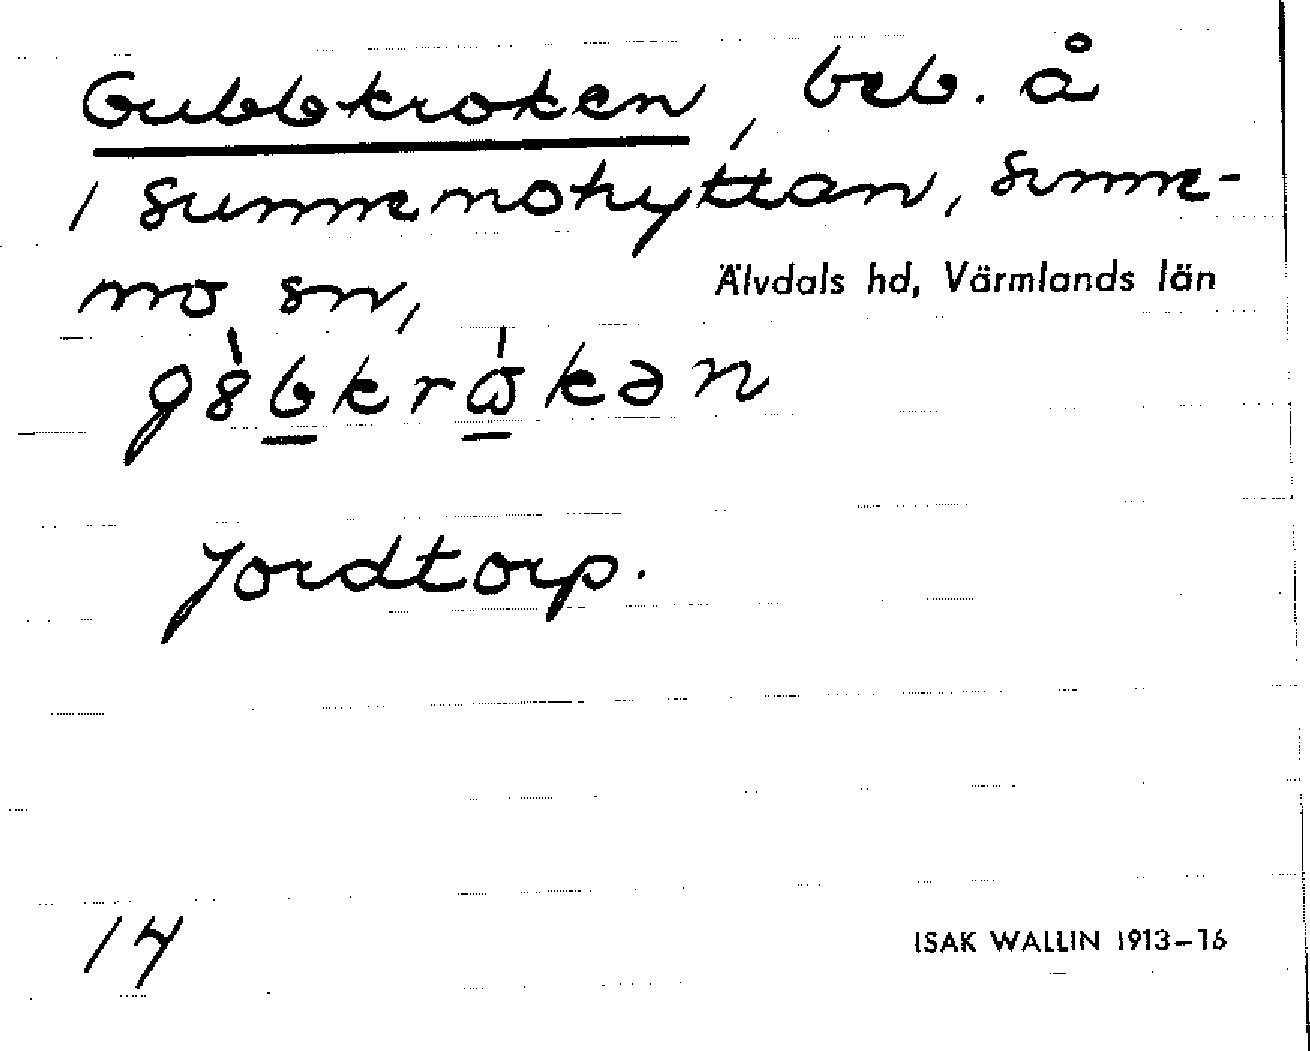 Gubbkroken, beb. å
1 Sunnemohyttan, Sunne-
mo sn,
Älvdals hd, Värmlands län
Jordtorp.
14
ISAK WALLIN 1913–16